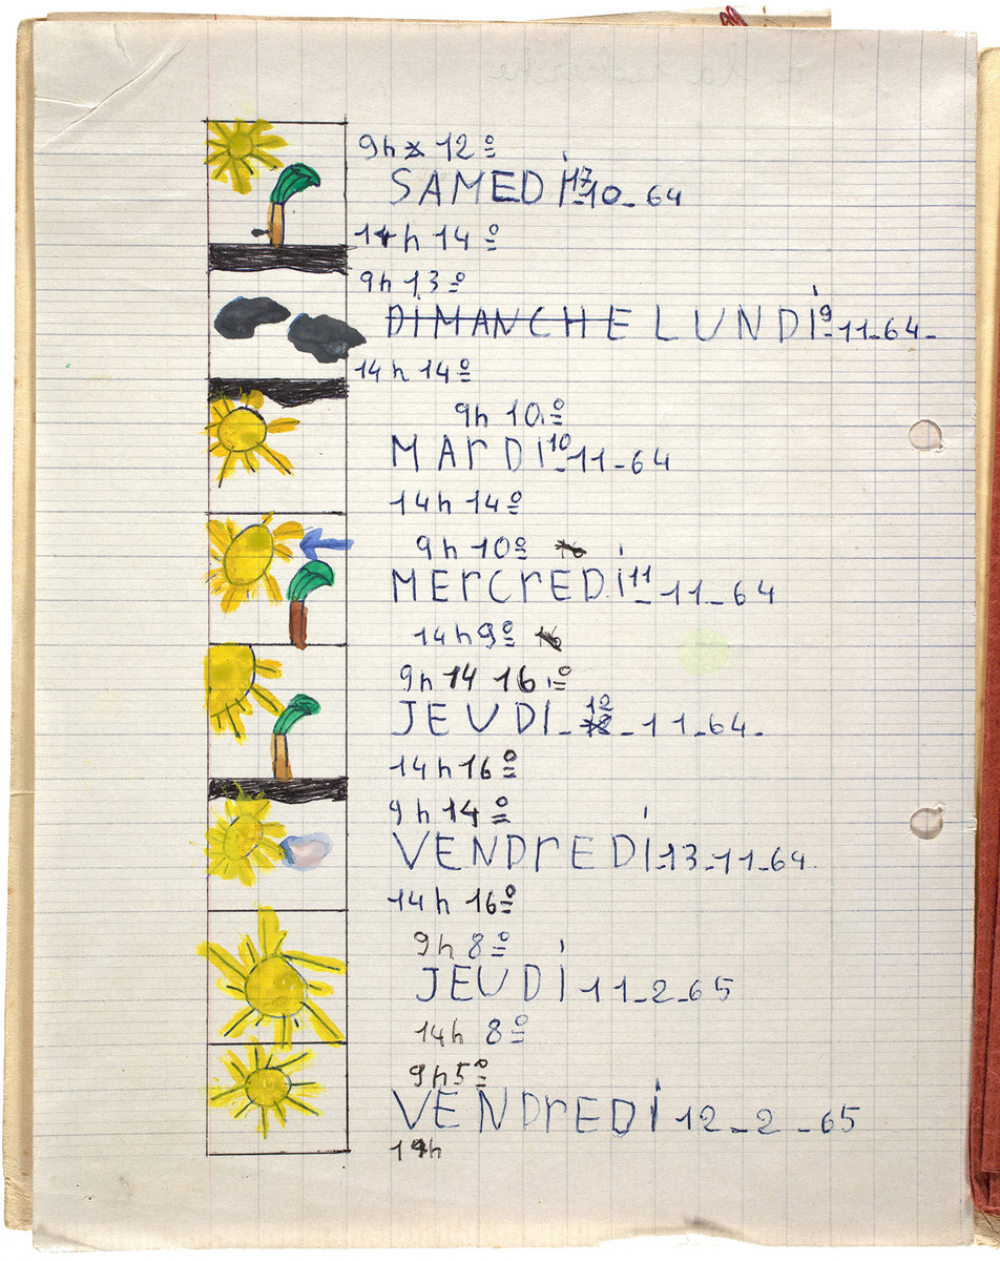 9h 12º
SAMEDI 17-10-64
14h 14º
9h 13º
DIMANCHE LUNDI 9-11-64-
14h 14º
9h 10.º
MArDI 10-11-64
14h 14º
9h 10º
MErCrEDI 11-11-64
14h 9º
9h 14 16.º
JEUDI-12-11-64-
14h 16º
9h 14º
VENDrEDI-13-11-64.
14h 16º
9h 8º
JEUDI 11-2-65
14h 8º
9h 5º
VENDrEDI 12-2-65
14h